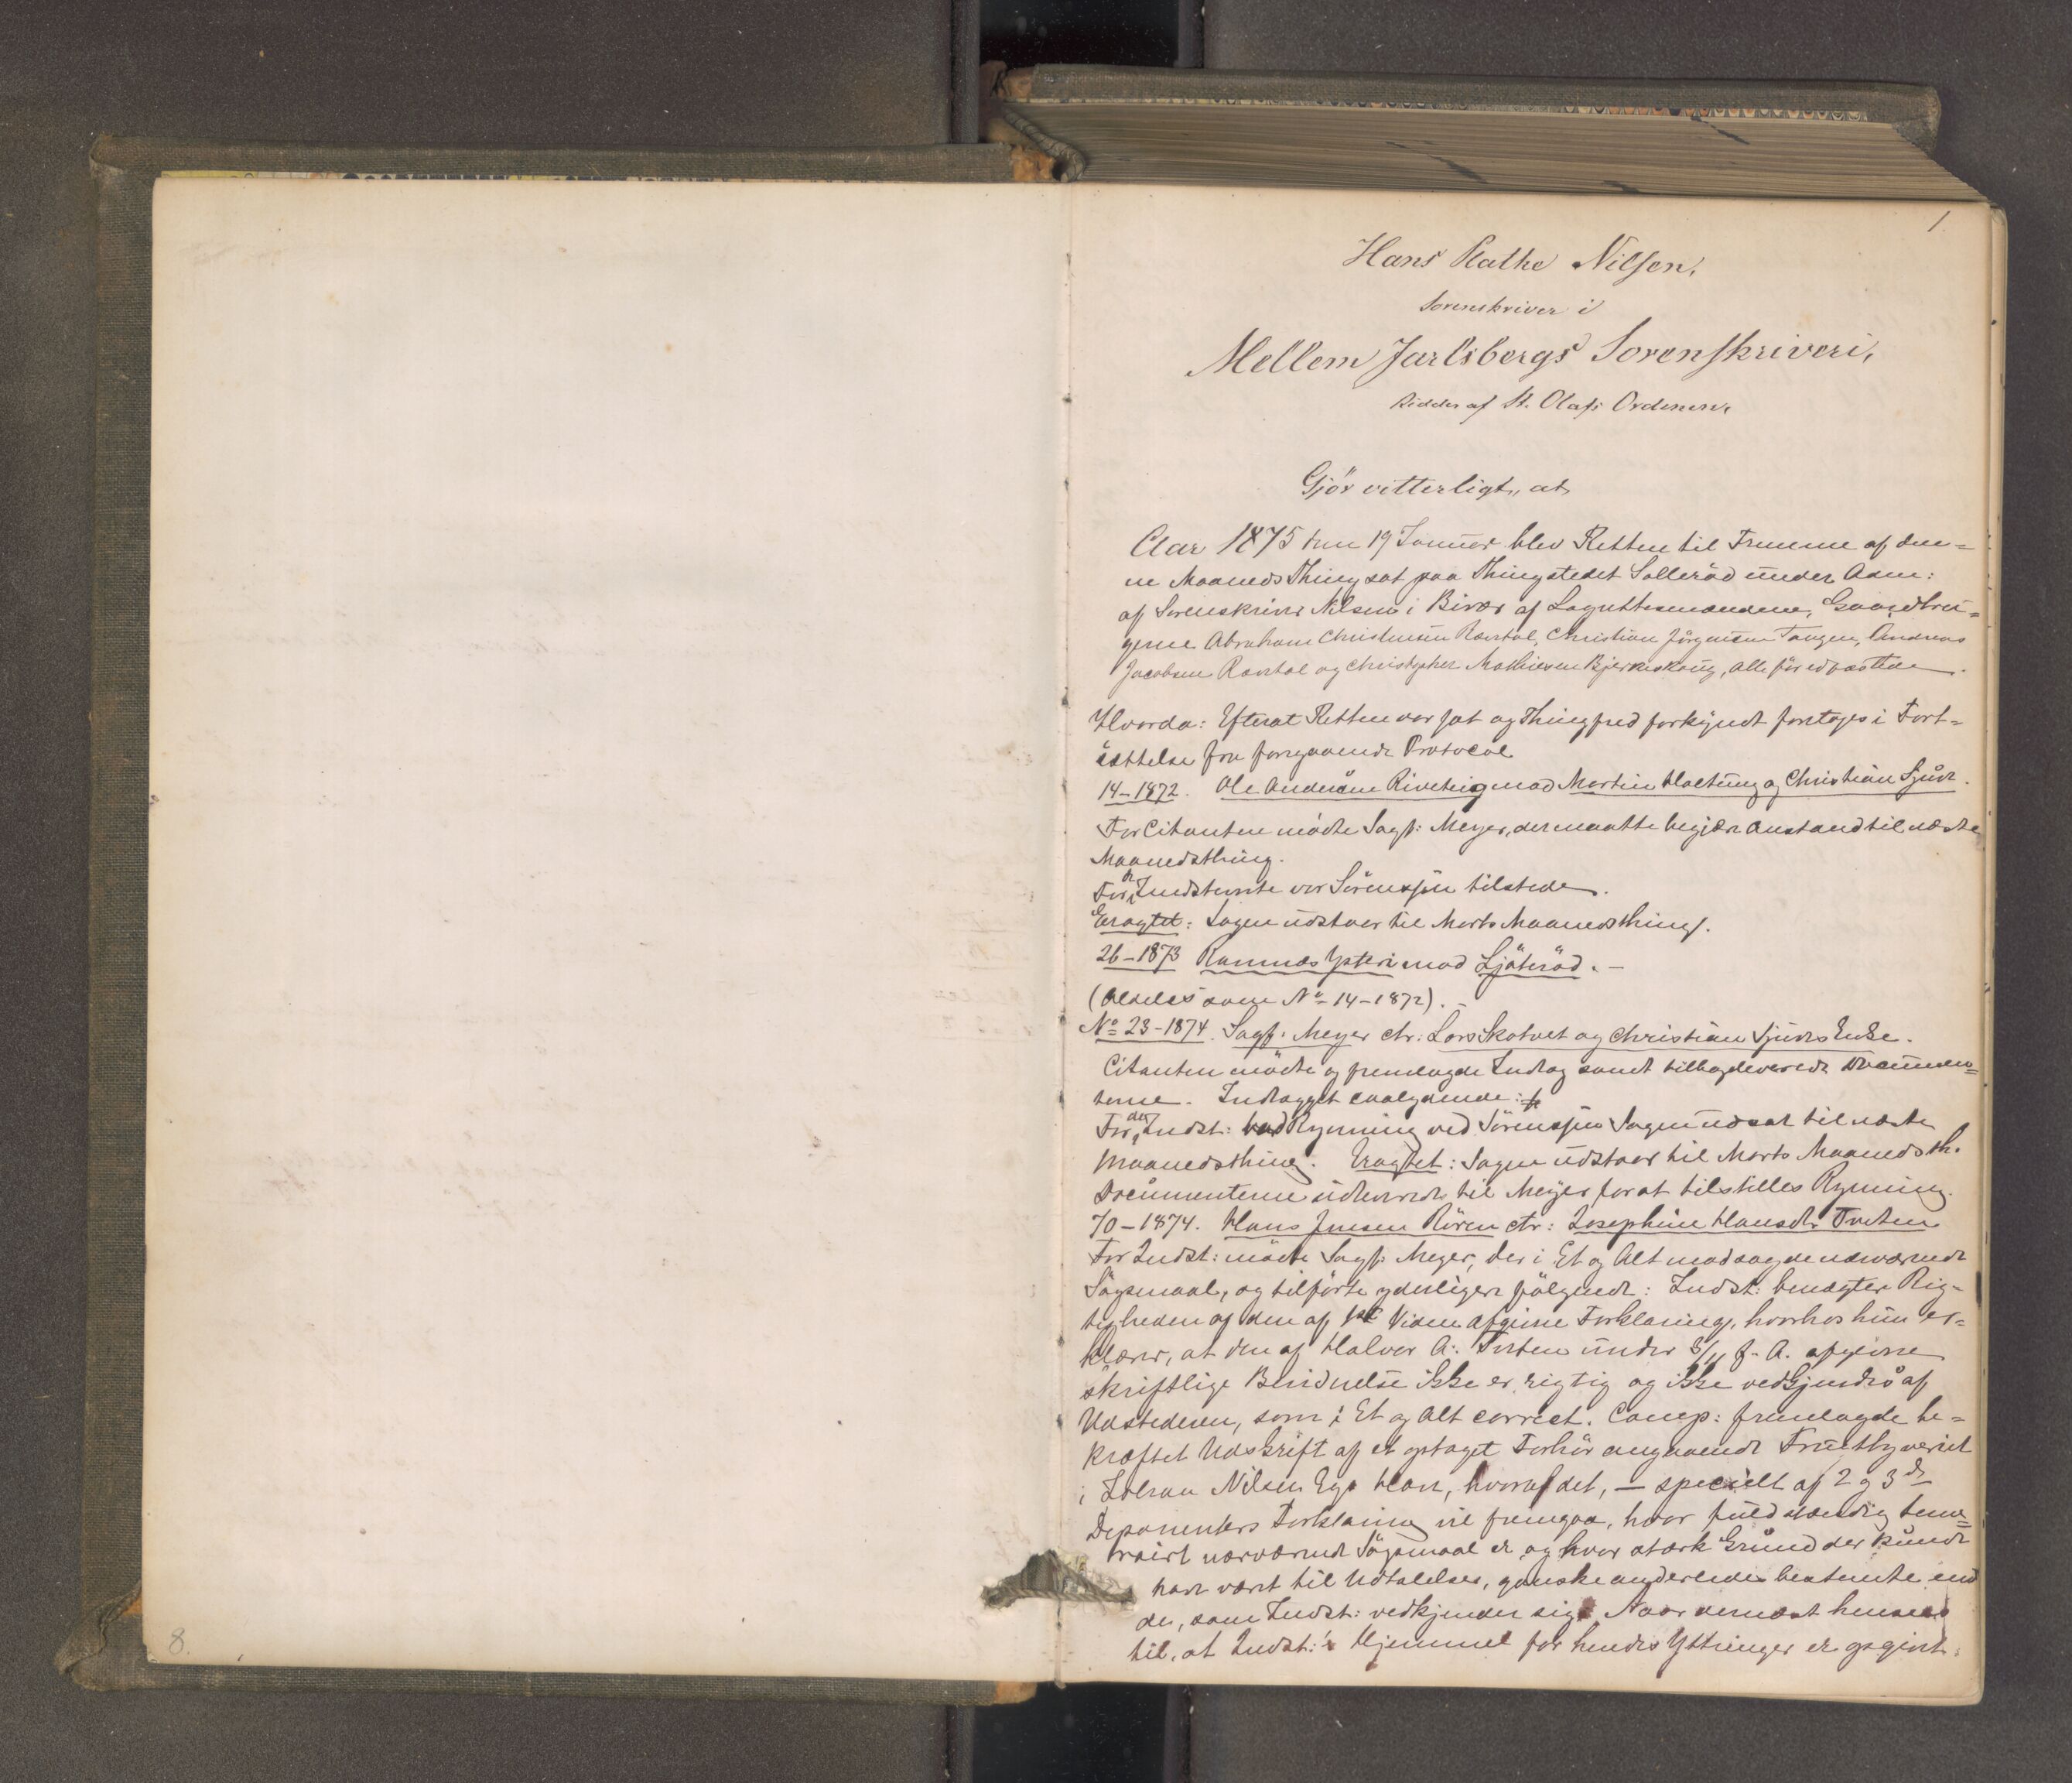 1.
Hans Rathe Nilsen,
Sorenskriver i
Mellem Jarlsbergs Sorenskriveri,
Ridder af St. Olafs Ordenen,
Gjör vitterligt, at
Aar 1875 den 19 Januar blev Retten til Fremme af den=
ne Maaneds Thing sat paa Thingstedet Solleröd under Adm:
af Sorenskriver Nilsen i Bivær af Lagrettesmændene, Gaardbru=
gerne Abraham Christensen Ravdal, Christian Jörgensen Tangen, Andreas
Jacobsen Ravdal og Christopher Mathiesen Bjerkeskoug, alle för edfæstede.
Hvorda: Efterat Retten var sat og Thingfred forkyndt foretoges i Fort=
sættelse fra foregaaende Protocol
14-1872. Ole Andersen Riveteig mod Martin Haltung og Christian Sjüve.
For Citanten mödte Sagf: Meyer, der maatte begjære Anstand til næste
Maanedsthing.
For Indstevnte var Sörenssen tilstede.
Eragtet: Sagen udstaar til Marts Maanedsthing.
26-1873 Ramnæs Ysteri mod Ljöteröd. -
(Aldeles som No 14-1872). -
No 23-1874. Sagf. Meyer ctr: Lars Skatvet og Christian Sjuves Enke.
Citanten mödte og fremlagde Indlæg samt tilbageleverede Documen=
terne. Indlægget saalydende:
For de Indst: Rynning ved Sörenssen Sagen udsat til næste
Maanedsthing. Eragtet: Sagen udstaar til Marts Maanedsth.
Documenterne udleveredes til Meyer for at tilstilles Rynning.
70-1874. Hans Jensen Rören ctr: Josephine Hansdtr Tveten
For Indst: mödte Sagf: Meyer, der i Et og Alt modsagde nærværende
Sögsmaal, og tilförte yderligere fölgende: Indst: benægter Rig=
tigheden af den af 1ste Vidne afgivne Forklaring, hvorhos hun er=
klærer, at den af Halvor A. Tveten under 3/11 f. A. afgivne
skriftlige Bevidnelse ikke er rigtig og ikke vedkjendes af
Udstederen, som i Et og Alt correct. Comp: fremlagde be=
kræftet Udskrift af et optaget Forhör angaaende Frugttyveriet
i Nilsen Eys Have, hvoraf det, — specielt af 2 og 3de
Deponenters Forklaring vil fremgaa, hvor fuldstændig teme=
rairt nærværende Sögsmaal er, og hvor stærk Grund der kunde
have været til Udtalelser, ganske anderledes bestemte end
de, som Indst: vedkjender sig. Naar dernæst hensees
til, at Indst:'s Hjemmel for hendes Yttringer er opgivet,
8.